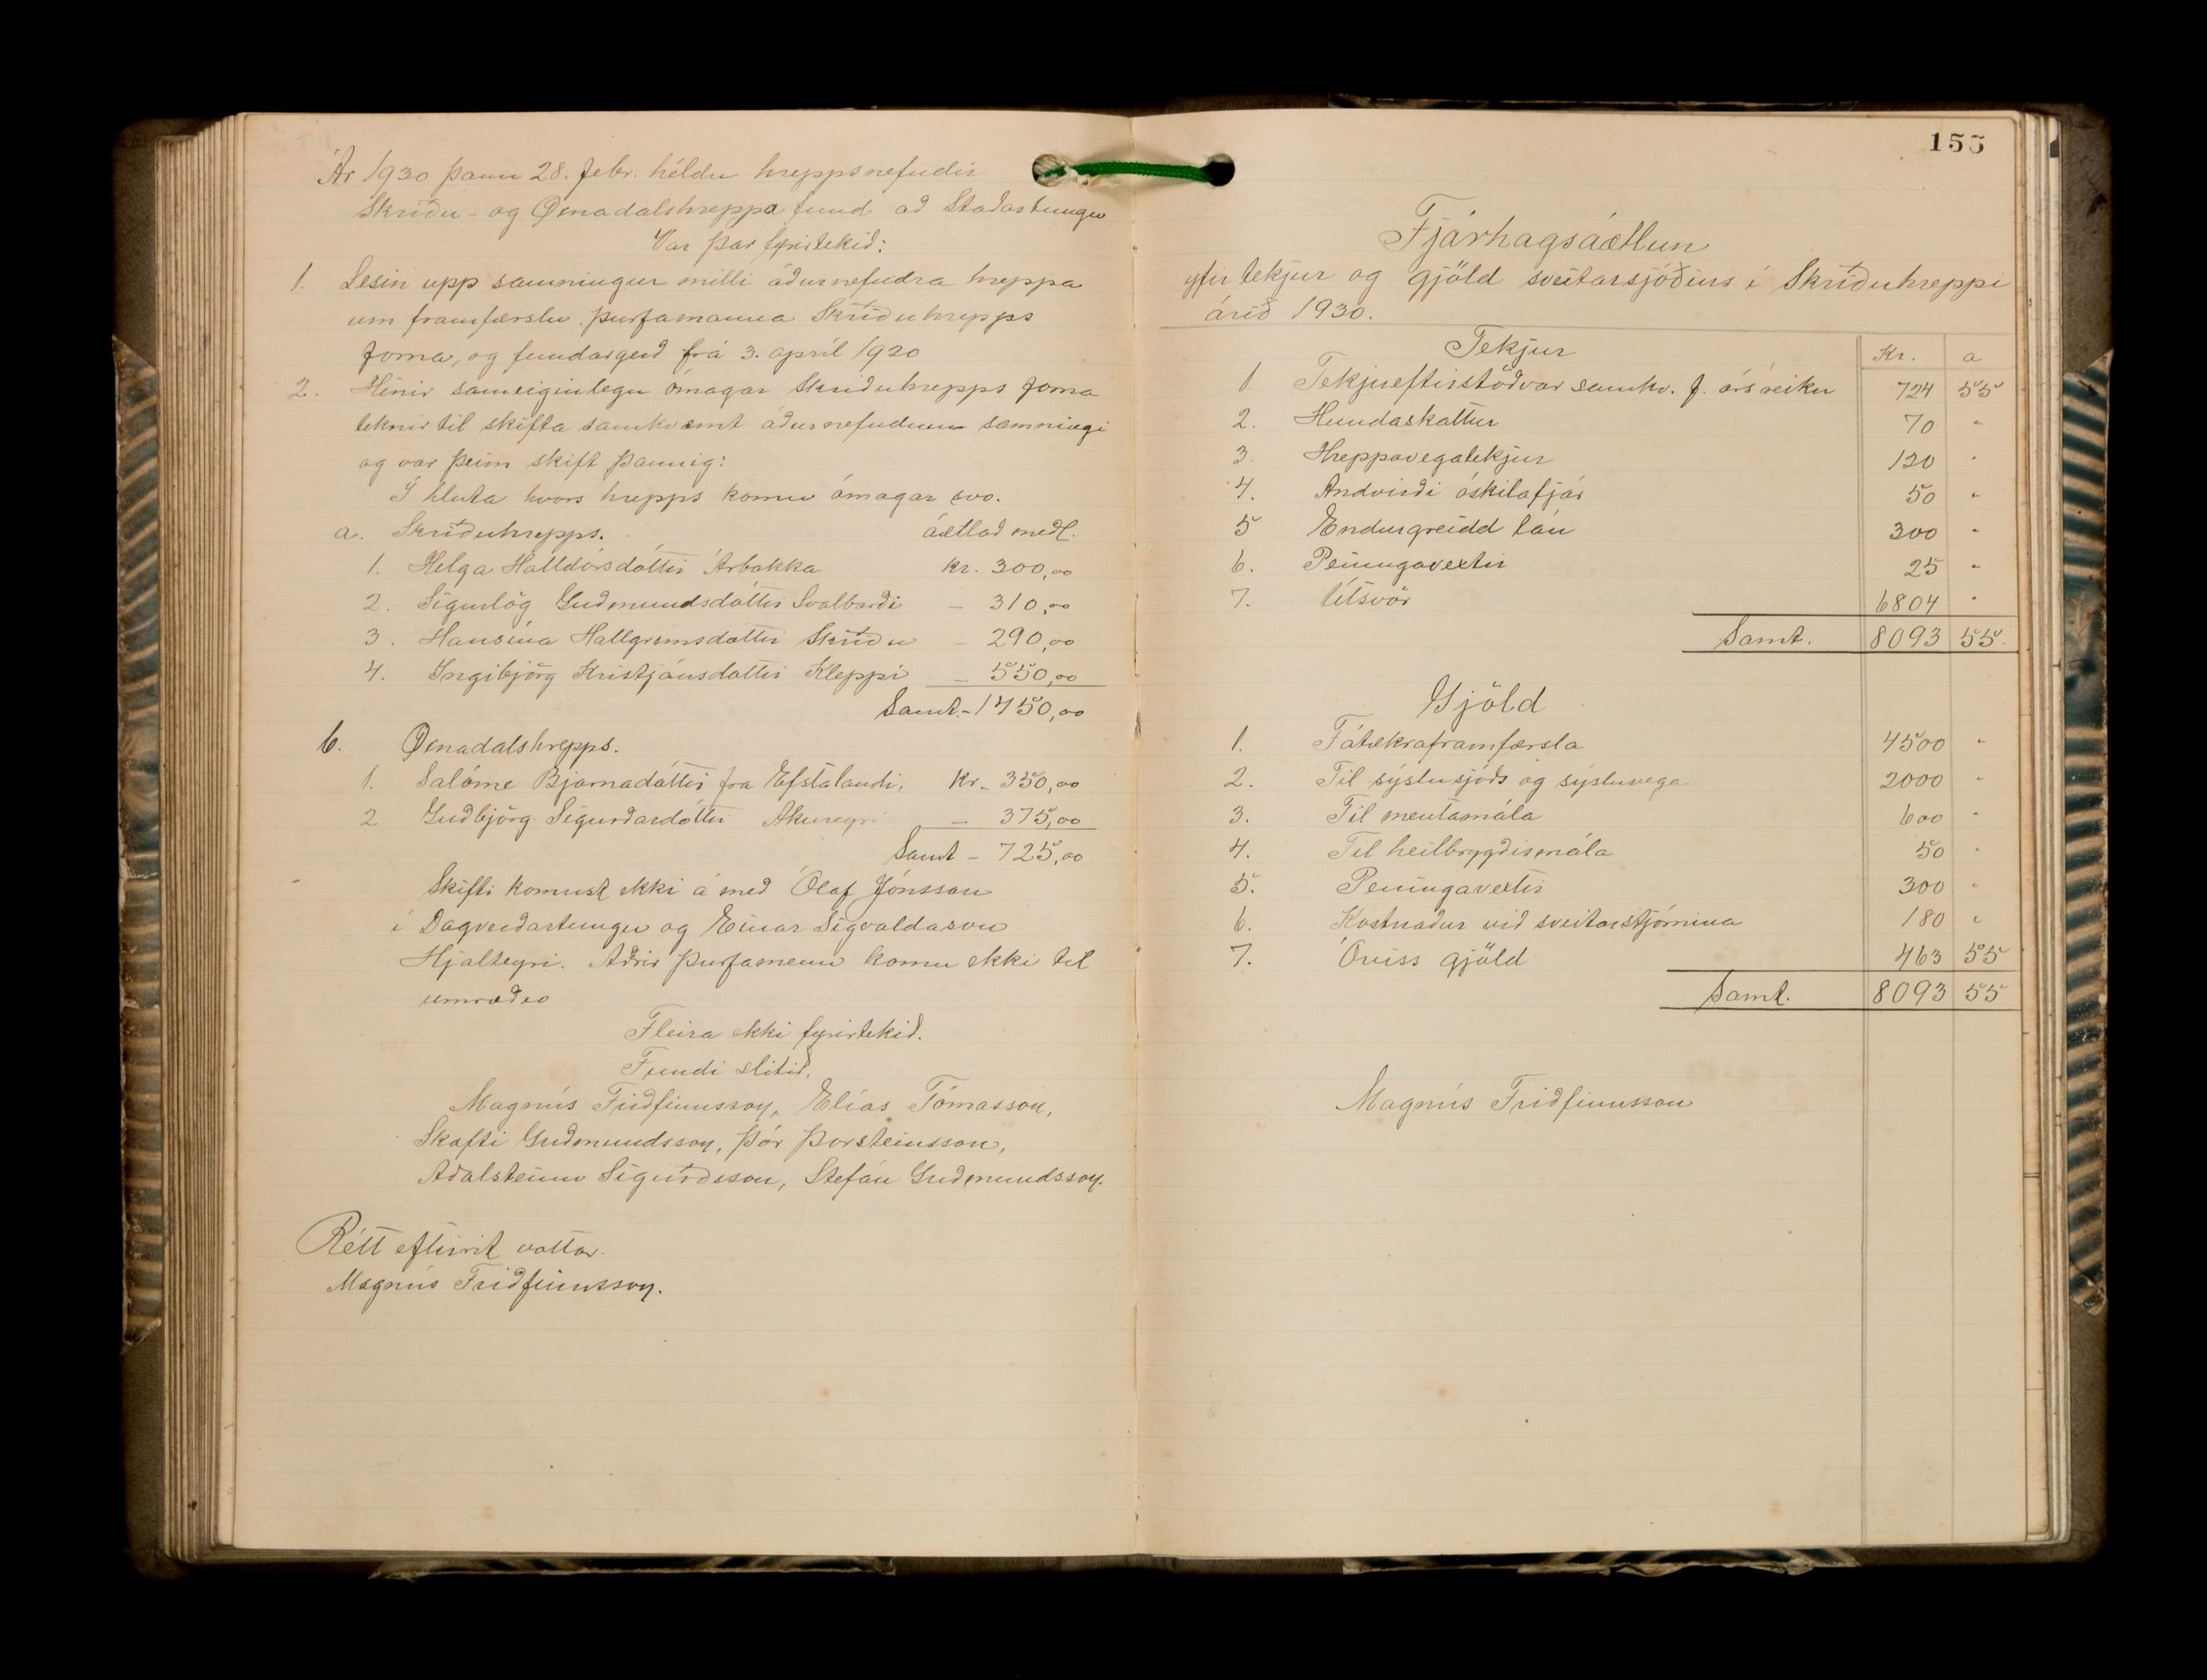 Ár 1930 þann 28. febr. héldu hreppsnefndir
Skriðu- og Öxnadalshreppa fund að Staðartungu
Var þar fyrirtekið:
1. Lesin upp samningur milli áðurnefndra hreppa
um framfærslu þurfamanna Skriðuhrepps
forna, og fundargerð frá 3. apríl 1920
2. Hinir sameiginlegu ómagar Skriðuhrepps forna
teknir til skifta samkvæmt áðurnefndum samningi
og var þeim skift þannig:
Í hluta hvors hrepps komu ómagar svo.
a. Skriðuhrepps. áætlað meðl.
1. Helga Halldórsdóttir Árbakka kr. 300,00
2. Sigurlög Guðmundsdóttir Svalbarði - 310,00
3. Hansína Hallgrímsdóttir Skriðu - 290,00
4. Ingibjörg Kristjánsdóttir Kleppi - 550,00
Samt. - 1450,00
b. Öxnadalshrepps.
1. Salóme Bjarnadóttir frá Efstalandi. Kr. 350,00
2 Guðbjörg Sigurðardóttir Akureyri - 375,00
Samt - 725,00
Skifti komust ekki á með Ólaf Jónsson
í Dagverðartungu og Einar Sigvaldason
Hjalteyri. Aðrir þurfamenn komu ekki til
umræðu
Fleira ekki fyrirtekið.
Fundi slitið.
Magnús Friðfinnsson, Elías Tómasson,
Skafti Guðmundsson, Þór Þorsteinsson,
Aðalsteinn Sigurðsson, Stefán Guðmundsson.
Rétt eftirrit vottar.
Magnús Friðfinnsson.
155
Fjárhagsáætlun
yfir tekjur og gjöld sveitarsjóðins í Skriðuhreppi
árið 1930.
Tekjur Kr. a
1. Tekjueftirstöðvar samkv. f. árs reikn 724 55
2. Hundaskattur 70 "
3. Hreppavegatekjur 120 "
4. Andvirði óskilafjár 50 "
5 Endurgreidd lán 300 "
6. Peningavextir 25 "
7. Útsvör 6804 "
Samt. 8093 55.
Gjöld
1. Fátækraframfærsla 4500 "
2. Til sýslusjóðs og sýsluvega 2000 "
3. Til mentamála 600 "
4. Til heilbrygðismála 50 "
5. Peningavextir 300 "
6. Kostnaður við sveitarstjórnina 180 "
7. Óviss gjöld 463 55
Samt. 8093 55
Magnús Friðfinnsson